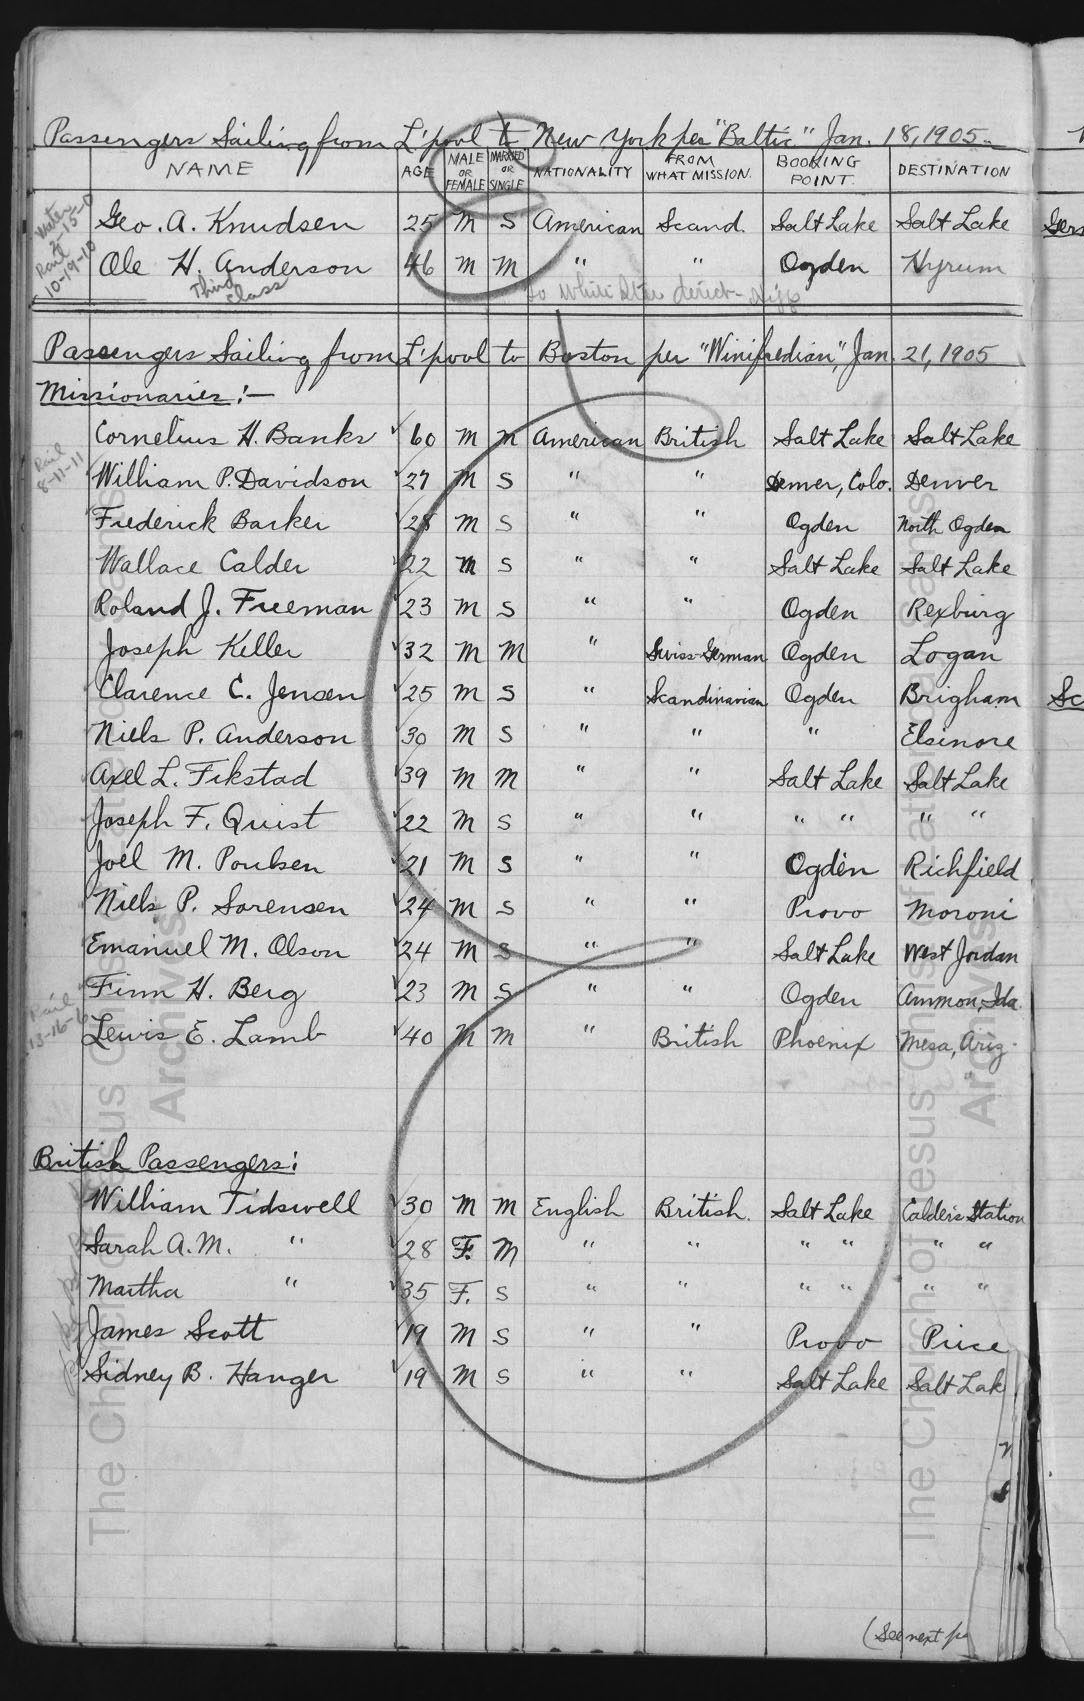 Passengers Sailing from L'pool to New York per "Baltic" Jan. 18, 1905.
NAME AGE MALE OR FEMALE MARRIED OR SINGLE NATIONALITY FROM WHAT MISSION. BOOKING POINT. DESTINATION
Geo. A. Knudsen 25 M S American Scand. Salt Lake Salt Lake
Ole H. Anderson 46 M M " " Ogden Hyrum
Rail
10-19-10
Third Class
to White Star
Passengers Sailing from L'pool to Boston per "Winifredian", Jan. 21, 1905
Missionaries:—
Cornelius H. Banks 60 M M American British Salt Lake Salt Lake
Rail
8-11-11
William P. Davidson 27 M S " " Denver, Colo. Denver
Frederick Barker 28 M S " " Ogden North Ogden
Wallace Calder 22 M S " " Salt Lake Salt Lake
Roland J. Freeman 23 M S " " Ogden Rexburg
Joseph Keller 32 M M " Swiss-German Ogden Logan
Clarence C. Jensen 25 M S " Scandinavian Ogden Brigham
Niels P. Anderson 30 M S " " " Elsinore
Axel L. Fikstad 39 M M " " Salt Lake Salt Lake
Joseph F. Quist 22 M S " " " " " "
Joel M. Poulsen 21 M S " " Ogden Richfield
Niels P. Sorensen 24 M S " " Provo Moroni
Emanuel M. Olson 24 M S " " Salt Lake West Jordan
Finn H. Berg 23 M S " " Ogden Ammon, Ida.
Rail
Lewis E. Lamb 40 M M " British Phoenix Mesa, Ariz.
British Passengers:
William Tidswell 30 M M English British. Salt Lake Calder's Station
Sarah A.M. " 28 F. M " " " " " "
Martha " 35 F. S " " " " " "
James Scott 19 M S " " Provo Price
Sidney B. Hanger 19 M S " " Salt Lake Salt Lak
(See next pa
The Church of Jesus Christ of Latter-day Saints
Archives
The Church of Jesus Christ of Latter-day Saints
Archives